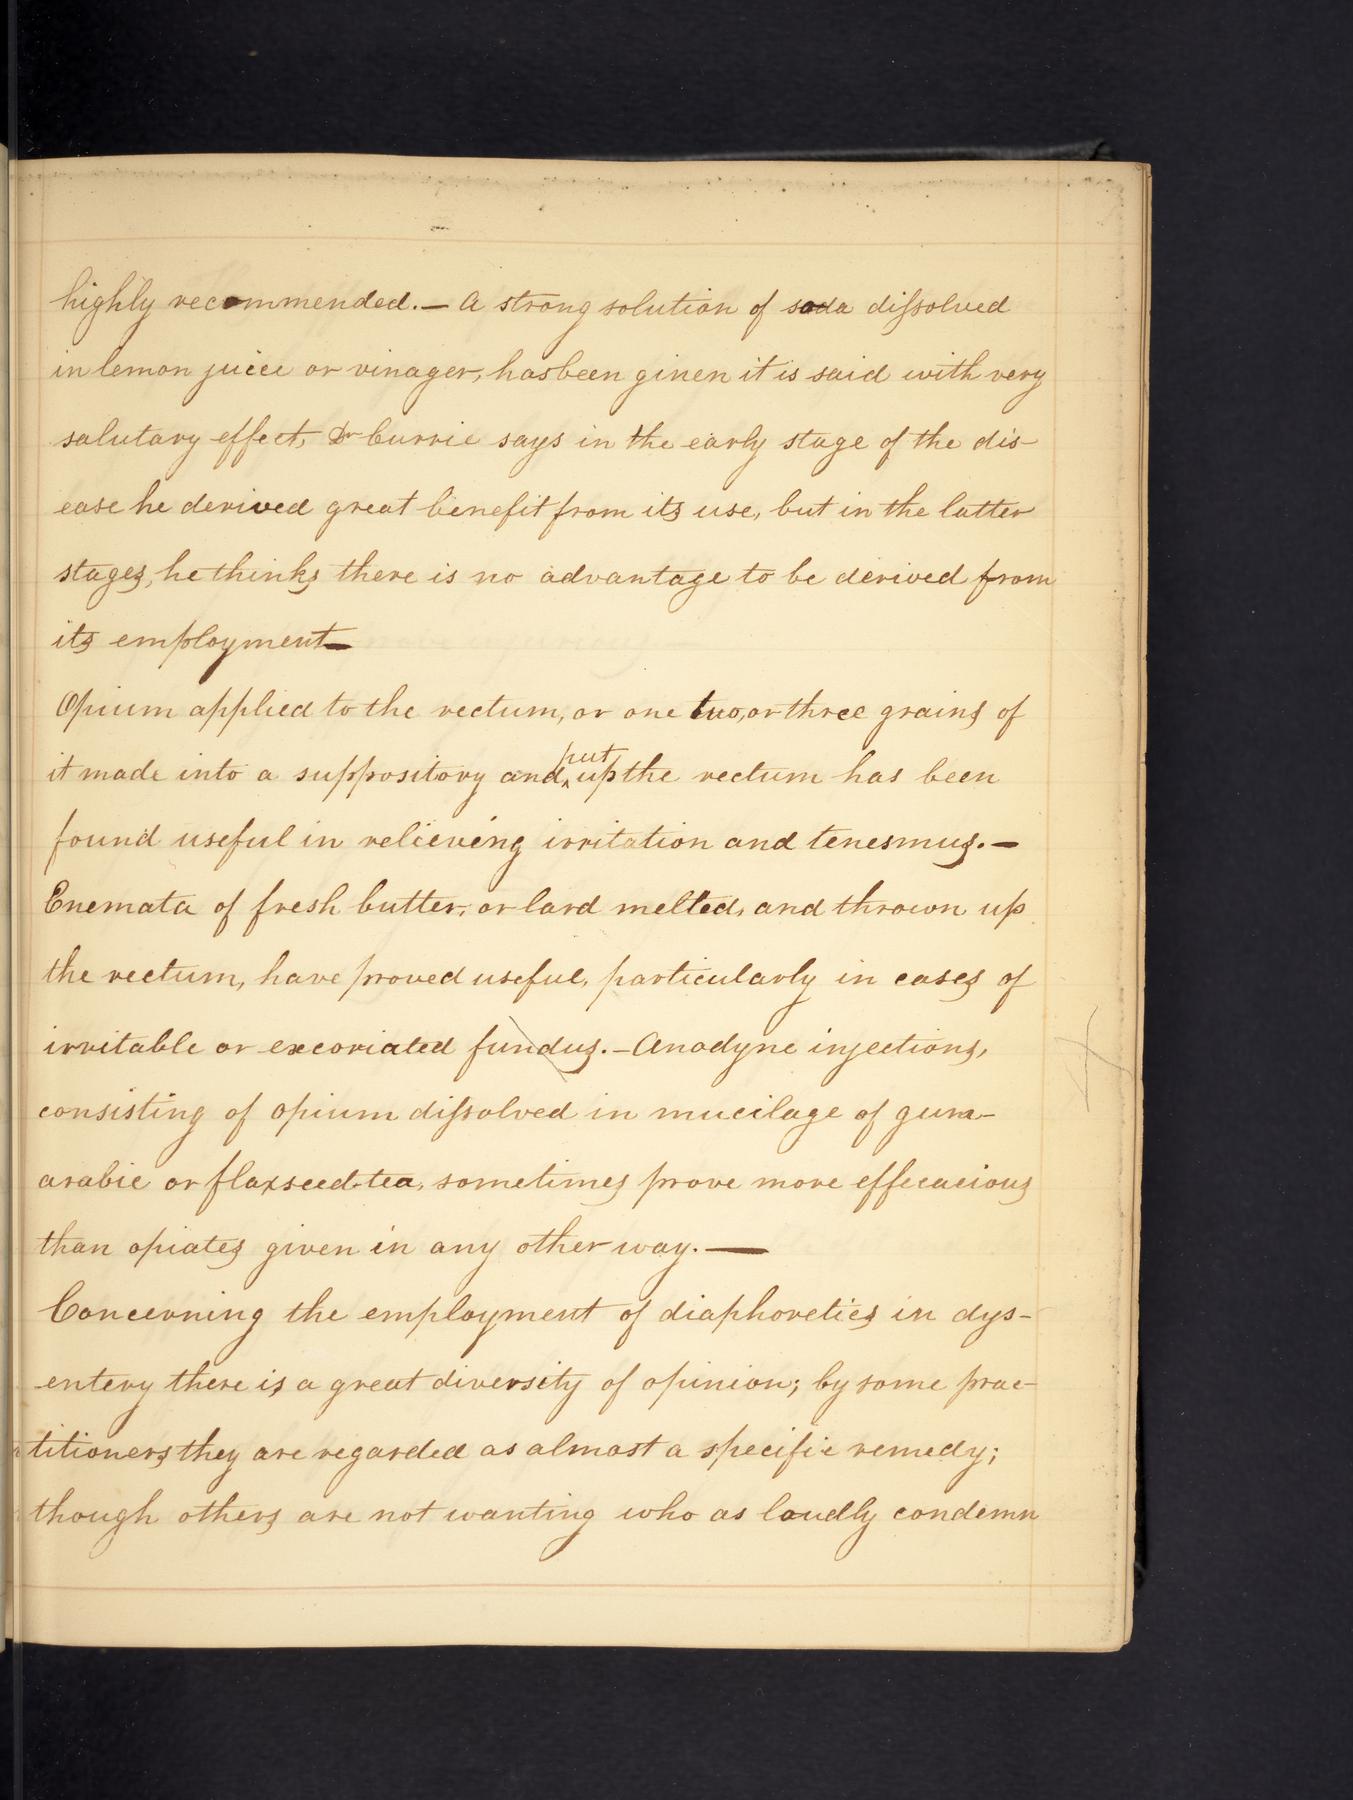 highly recommended.— A strong solution of soda dissolved
in lemon juice or vinager, has been given it is said with very
salutary effect, Dr Currie says in the early stage of the dis-
ease he derived great benefit from its use, but in the latter
stages, he thinks there is no advantage to be derived from
its employment—
Opium applied to the rectum, or one two, or three grains of
it made into a suppository and put up the rectum has been
found useful in relieving irritation and tenesmus.—
Enemata of fresh butter, or lard melted, and thrown up
the rectum, have proved useful, particularly in cases of
irritable or excoriated fundus.— Anodyne injections,
consisting of opium dissolved in mucilage of gum-
arabic or flaxseed-tea, sometimes prove more effecacious
than opiates given in any other way.—
Concerning the employment of diaphoretics in dys-
entery there is a great diversity of opinion; by some prac-
titioners they are regarded as almost a specific remedy;
though others are not wanting who as loudly condemn